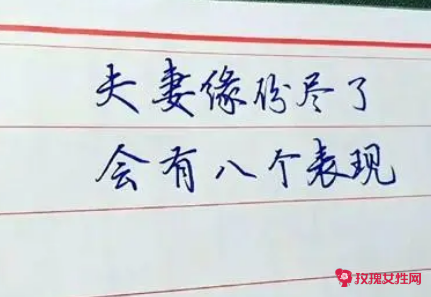 夫妻缘份尽了
会有八个表现
玫瑰女性网